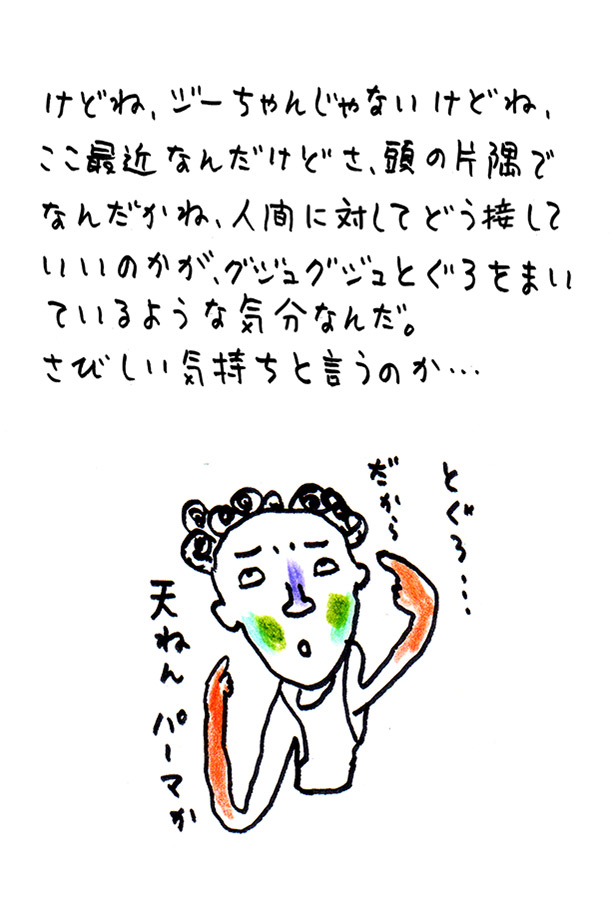 けどね、ジーちゃんじゃないけどね、
ここ最近なんだけどさ、頭の片隅で
なんだかね、人間に対してどう接して
いいのかが、グジュグジュとぐろをまい
ているような気分なんだ。
さびしい気持ちと言うのか…
とぐろ…
だから
天ねんパーマか